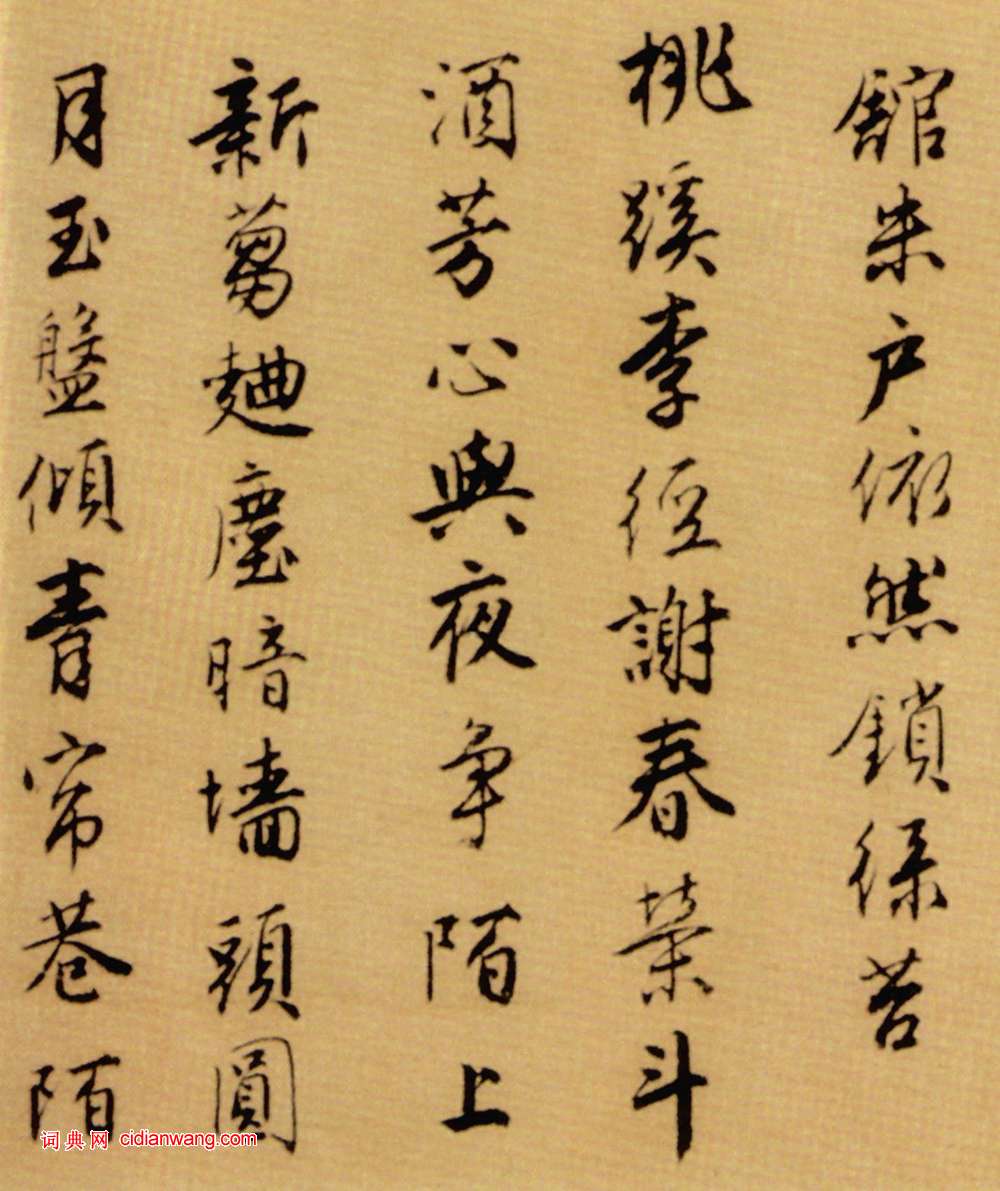 舘朱戸依然鎖緑苔
桃蹊李徑謝春榮斗
酒芳心與夜争陌上
新蒭麯塵暗墻頭圓
月玉盤傾青帘巷陌
词典网 cidianwang.com